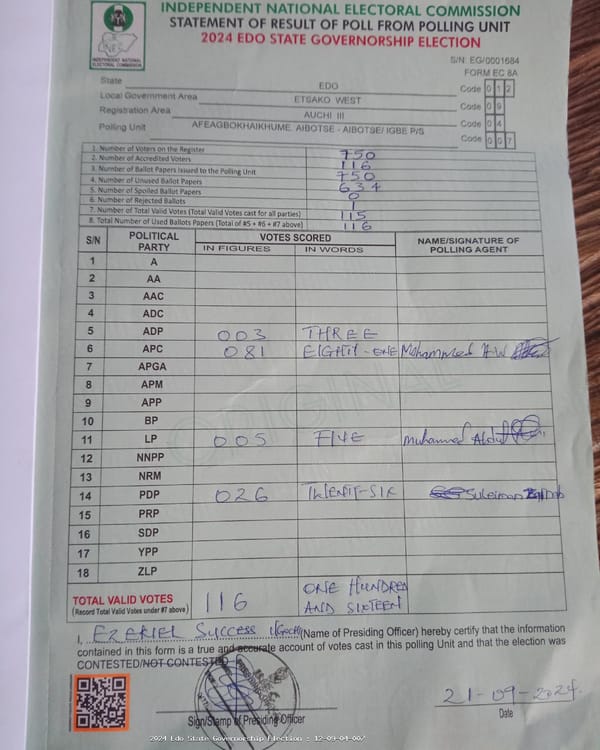 INDEPENDENT NATIONAL ELECTORAL COMMISSION
STATEMENT OF RESULT OF POLL FROM POLLING UNIT
2024 EDO STATE GOVERNORSHIP ELECTION
INDEPENDENT NATIONAL ELECTORAL COMMISSION
S/N: EG/0001684
FORM EC 8A
State EDO Code 0 1 2
Local Government Area ETSAKO WEST Code 0 9
Registration Area AUCHI III Code 0 4
Polling Unit AFEAGBOKHAIKHUME, AIBOTSE - AIBOTSE/ IGBE P/S Code 0 0 7
1. Number of Voters on the Register 750
2. Number of Accredited Voters 116
3. Number of Ballot Papers Issued to the Polling Unit 750
4. Number of Unused Ballot Papers 634
5. Number of Spoiled Ballot Papers 0
6. Number of Rejected Ballots 1
7. Number of Total Valid Votes (Total Valid Votes cast for all parties) 115
8. Total Number of Used Ballots Papers (Total of #5 + #6 + #7 above) 116
S/N POLITICAL PARTY VOTES SCORED NAME/SIGNATURE OF POLLING AGENT
IN FIGURES IN WORDS
1 A
2 AA
3 AAC
4 ADC
5 ADP 003 THREE
6 APC 081 EIGHTY-ONE Mohammed
7 APGA
8 APM
9 APP
10 BP
11 LP 005 FIVE Muhammed Abdul
12 NNPP
13 NRM
14 PDP 026 TWENTY-SIX Suleiman
15 PRP
16 SDP
17 YPP
18 ZLP
ORIGINAL
TOTAL VALID VOTES 116 ONE HUNDRED
(Record Total Valid Votes under #7 above) AND SIXTEEN
I, EZEKIEL SUCCESS (Name of Presiding Officer) hereby certify that the information
contained in this form is a true and accurate account of votes cast in this polling Unit and that the election was
CONTESTED/NOT CONTESTED
21-09-2024
Sign/Stamp of Presiding Officer Date
2024 Edo State Governorship Election : 12-09-04-007